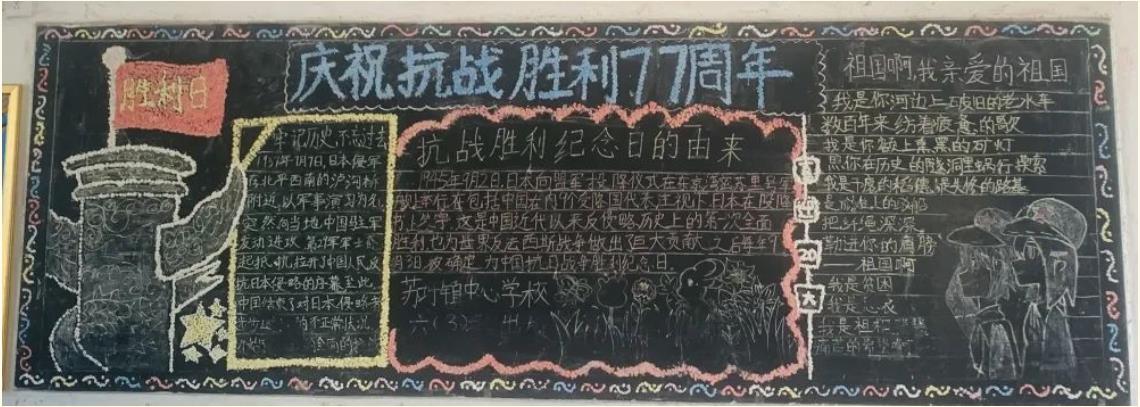 庆祝抗战胜利77周年
胜利日
牢记历史,不忘过去
1937年7月7日,日本侵军
在北平西南的卢沟桥
附近,以军事演习为名
突然向当地中国驻军
发动进攻,第29军
起抵抗,拉开中国人民反
抗日本侵略的序幕至此
中国结束了对日本侵略
的不正常状况
抗战胜利纪念日的由来
1945年9月2日,日本向盟军投降仪式在东京湾密苏里号军
舰上举行在包括中国在内的受降国代表主视下日本在投降
书上签字,这是中国近代以来反侵略历史上的第一次全面
胜利也为世界反法西斯战争做出了巨大贡献,之后每年9
月3日被确定为中国抗日战争胜利纪念日
镇中心学校
六(3)
喜
迎
20
大
祖国啊,我亲爱的祖国
我是你河边上破旧的老水车
数百年来纺着疲惫的歌
我是你额上熏黑的矿灯
照你在历史的隧洞里蜗行摸索
我是干瘪的稻穗,是失修的路基
是淤滩上的驳船
把纤绳深深
勒进你的肩膀
——祖国啊
我是贫困
我是悲哀
我是祖祖
痛苦的希望